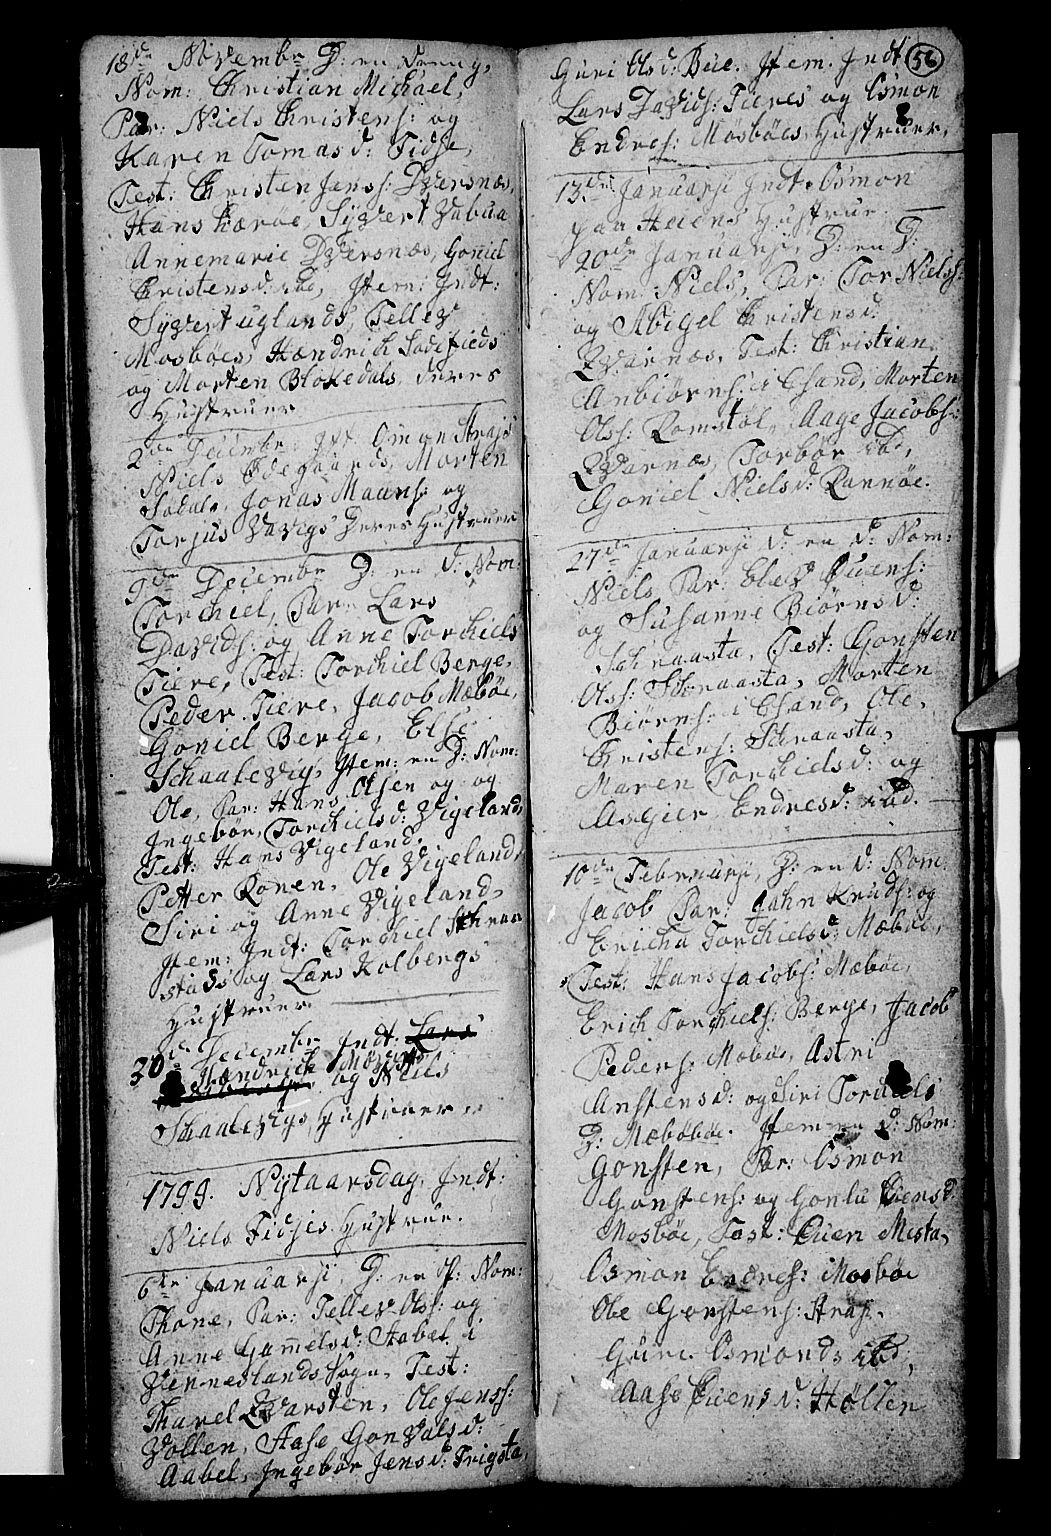 18de Novembr D: en dreng,
Nom: Christian Michael,
Par: Niels Christens: og
Karen Tomasd: Fidje,
Test: Christen Jenss: Dversnæs,
Hans Kærøe, Syvert Vabua
Annemarie Dversnæs, Goniel
Christensd: ibd, Item: Indt:
Syvert uglands, Tellev
Mosbøes, Hændrich
og Morten Blokedals, deres
Hustruer
2den Decembr: Int.
Niels Ødegaards, Morten
Sødals, Jonas Maans: og
Torjus Vavigs Deres Hustruer
9de Decembr D: en d: Nom:
Torchiel, Par: Lars
Davids: og Anne Torchiels
Tiere, Test: Torchiel Berge,
Peder Tiere, Jacob Mæbøe,
Goniel Berge, Else
Schaalevig, Item: en D: Nom:
Ole, Par: Hans Olsen og og
Ingebør Torchielsd: Vigeland,
Test: Hans Vigeland,
Petter Ronen, Ole Vigeland,
Siri og Anne Vigeland,
Item: Indt: Torchiel Schraa
stads og Lars Kolbergs
Hustruer
30de Decembr Indt: Lars
Hændrich
og Niels
Skaalevigs Hustruer
1799. Nytaarsdag, Indt:
Niels Fidjes Hustrue.
6te Januarji, D: en P: Nom:
Thone, Par: Tellev Ols: og
Anne Gam̅elsd: Stabel i
Venneslands Sogn, Test:
Tharel Qvarsten, Ole Jenss:
Vollen, Aase Gonvalsd:
Aabel, Ingebør Jensd: Trigsta,
56
Guri Olsd: Bue. Item. Indt
Lars Davids: Tieres og Osmon
Endres: Mosbøes Hustruer,
13de Januarji Indt: Osmon
paa Heiens Hustrue
20de Januarji, D: en D:
Nom: Niels, Par: Tor Nielss:
og Abigel Christensd:
Qvarnæs, Test: Christian
Anbiørns: i Øsand, Morten
Olss: Romstøl, Aage Jacobs:
Qvarnæs, Torbør ibd,
Goniel Nielsd: Rannøe.
27de Januarji D: en d: Nom:
Niels Par: Elev Evens:
og Susanne Biørnsd:
Schraasta, Test: Gonsten
Olss: Schraasta, Morten
Biørns: i Øsand, Ole
Christens: Schraasta,
Maren Torchielsd: og
Asgier Endresd: ibd.
10de Februarji, D: en d: Nom:
Jacob Par: Jahn Knuds: og
Ericha Torchielsd: Mæbøe,
Test: Hans Jacobs: Mæbøe,
Erich Torchiels: Berge, Jacob
Peders: Mæbøe, Astri
Anstensd: og Siri Torchiels
D: Mæbøbøe. Item en d: Nom:
Gonsten, Par: Osmon
Gonstens: og Gonlu Eiensd:
Mosbøe, Test: Euen Mesta,
Osmon Endres: Mosbøe
Ole Gonstens: Straj,
Guri Osmonds ibd,
Aase Eiensd: Høllen